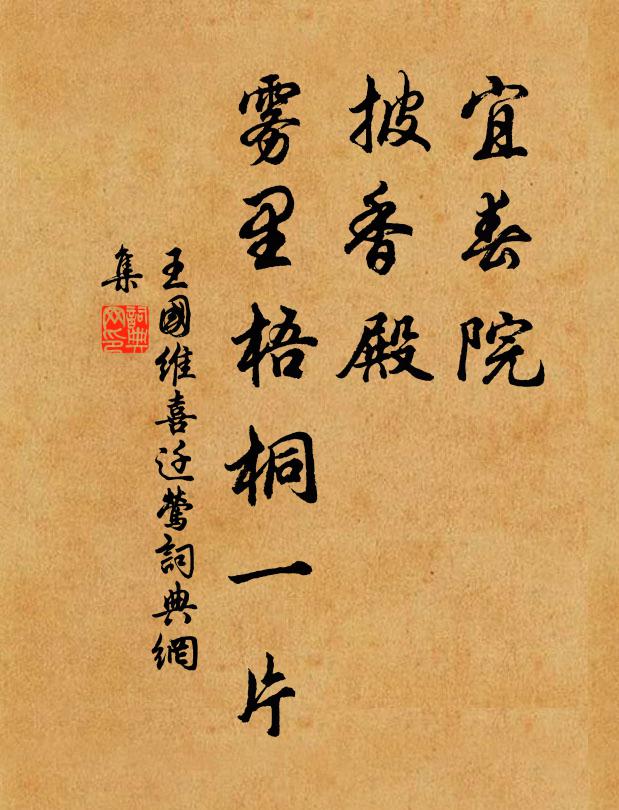 宜春院
披香殿
雾里梧桐一片
王國维喜迁莺詞典網
集
詞典
网印